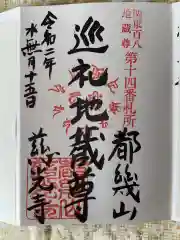 関東百八
地蔵尊
第十四番札所
都幾山
巡礼地蔵尊
慈光寺
令和二年
水無月十五日